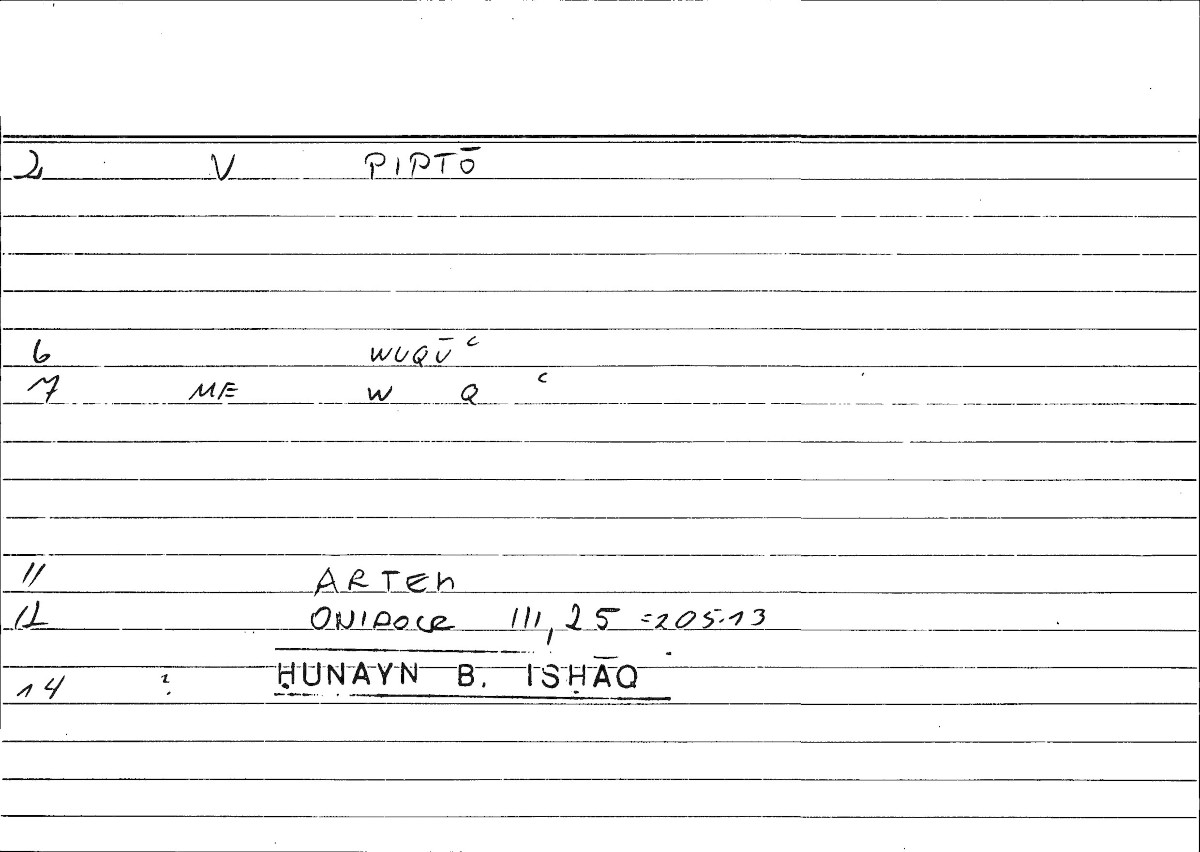 2 V PIPTŌ
6 WUQŪʿ
7 ME W Q ʿ
11 ARTEM
12 ONIROCR III, 25 =205.13
14 ? ḤUNAYN B. ISḤĀQ